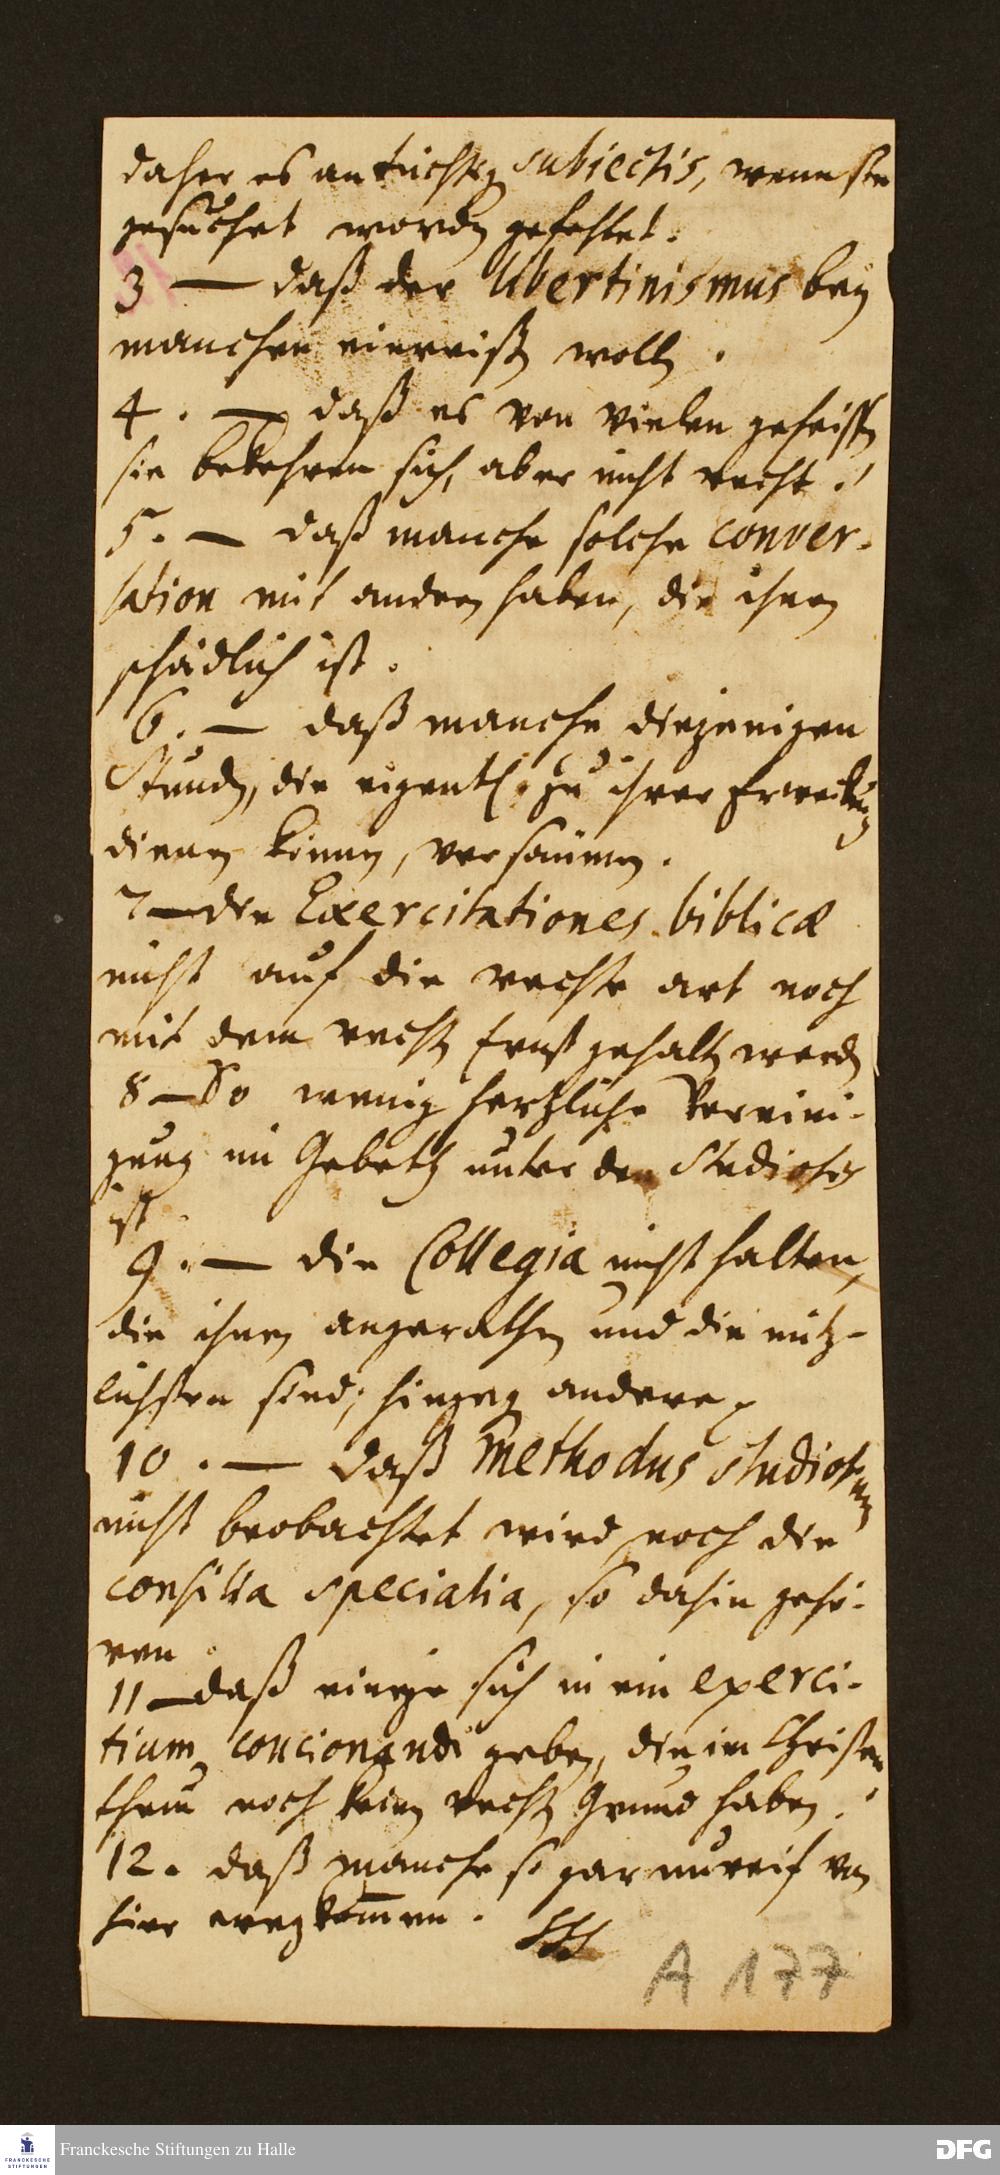 daher es an tüchtig subiectis, wenn sie
gesuchet worden gefehlet.
3 — daß der libertinismus bey
manchen einreißen wollen.
4. — daß es von vielen geheißen
sie bekehren sich, aber nicht recht.
5. — daß manche solche conver-
sation mit andern haben, die ihnen
schädlich ist.
6. — daß manche diejenigen
Stunden, die eigentl. zu ihrer Erweckung
dienen können, versäumen.
7 — die Exercitationes biblicæ
nicht auf die rechte art noch
mit dem rechten Ernst gehalten werden
8 — So wenig hertzliche Vereini-
gung im Gebeth unter den Studiosis
ist
9. — die Collegia nicht halten,
die ihnen angerathen und die nütz-
lichsten sind; hingegen andere
10. — daß Methodus studiorum
nicht beobachtet wird noch die
consilia specialia, so dahin gehö-
ren
11 — daß einige sich in ein exerci-
tium concionandi geben, die im Christen
thum noch keinen rechten Grund haben.
12. daß manche so gar unreif von
hier wegkommen.
A 177
FRANCKESCHE
STIFTUNGEN
Franckesche Stiftungen zu Halle
DFG